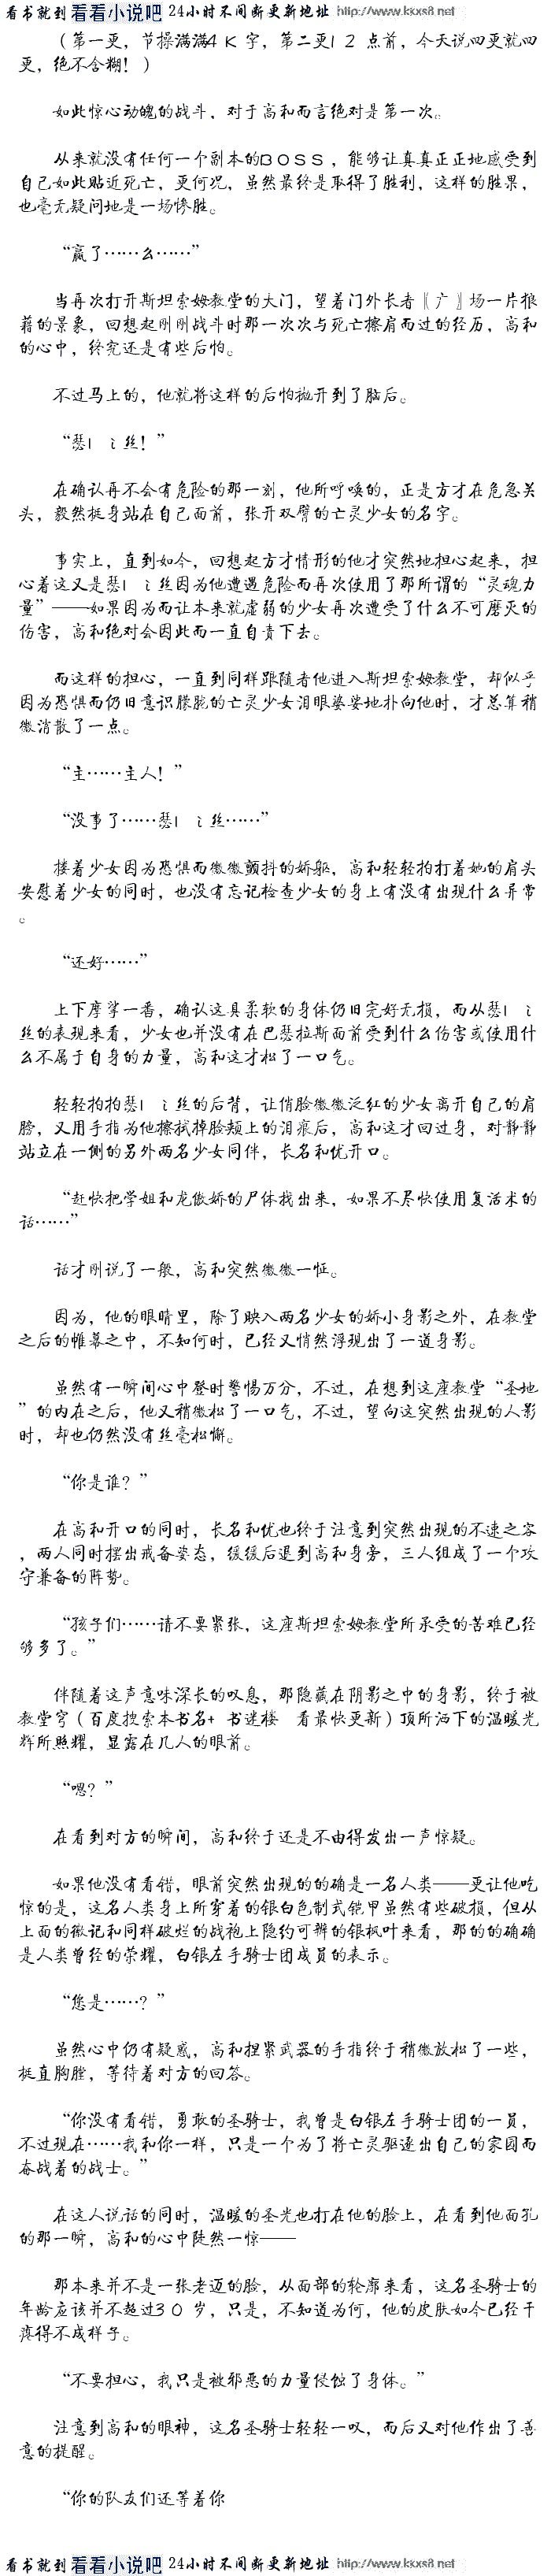 看书就到 看看小说吧 24小时不间断更新地址 http://www.kkxs8.net
（第一更，节操满满4K字，第二更12点前，今天说四更就四
更，绝不含糊！）
如此惊心动魄的战斗，对于高和而言绝对是第一次。
从来就没有任何一个副本的BOSS，能够让真真正正地感受到
自己如此贴近死亡，更何况，虽然最终是取得了胜利，这样的胜果，
也毫无疑问地是一场惨胜。
“赢了……么……”
当再次打开斯坦索姆教堂的大门，望着门外长者〖广〗场一片狼
藉的景象，回想起刚刚战斗时那一次次与死亡擦肩而过的经历，高和
的心中，终究还是有些后怕。
不过马上的，他就将这样的后怕抛开到了脑后。
“瑟l ㄋ丝！”
在确认再不会有危险的那一刻，他所呼唤的，正是方才在危急关
头，毅然挺身站在自己面前，张开双臂的亡灵少女的名字。
事实上，直到如今，回想起方才情形的他才突然地担心起来，担
心着这又是瑟l ㄋ丝因为他遭遇危险而再次使用了那所谓的“灵魂力
量”——如果因为而让本来就虚弱的少女再次遭受了什么不可磨灭的
伤害，高和绝对会因此而一直自责下去。
而这样的担心，一直到同样跟随者他进入斯坦索姆教堂，却似乎
因为恐惧而仍旧意识朦胧的亡灵少女泪眼婆娑地扑向他时，才总算稍
微消散了一点。
“主……主人！”
“没事了……瑟l ㄋ丝……”
搂着少女因为恐惧而微微颤抖的娇躯，高和轻轻拍打着她的肩头
安慰着少女的同时，也没有忘记检查少女的身上有没有出现什么异常
。
“还好……”
上下摩挲一番，确认这具柔软的身体仍旧完好无损，而从瑟l ㄋ
丝的表现来看，少女也并没有在巴瑟拉斯面前受到什么伤害或使用什
么不属于自身的力量，高和这才松了一口气。
轻轻拍拍瑟l ㄋ丝的后背，让俏脸微微泛红的少女离开自己的肩
膀，又用手指为他擦拭掉脸颊上的泪痕后，高和这才回过身，对静静
站立在一侧的另外两名少女同伴，长名和优开口。
“赶快把学姐和龙傲娇的尸体找出来，如果不尽快使用复活术的
话……”
话才刚说了一般，高和突然微微一怔。
因为，他的眼睛里，除了映入两名少女的娇小身影之外，在教堂
之后的帷幕之中，不知何时，已经又悄然浮现出了一道身影。
虽然有一瞬间心中登时警惕万分，不过，在想到这座教堂“圣地
”的内在之后，他又稍微松了一口气，不过，望向这突然出现的人影
时，却也仍然没有丝毫松懈。
“你是谁？”
在高和开口的同时，长名和优也终于注意到突然出现的不速之客
，两人同时摆出戒备姿态，缓缓后退到高和身旁，三人组成了一个攻
守兼备的阵势。
“孩子们……请不要紧张，这座斯坦索姆教堂所承受的苦难已经
够多了。”
伴随着这声意味深长的叹息，那隐藏在阴影之中的身影，终于被
教堂穹（百度搜索本书名+ 书迷楼 看最快更新）顶所洒下的温暖光
辉所照耀，显露在几人的眼前。
“嗯？”
在看到对方的瞬间，高和终于还是不由得发出一声惊疑。
如果他没有看错，眼前突然出现的的确是一名人类——更让他吃
惊的是，这名人类身上所穿着的银白色制式铠甲虽然有些破损，但从
上面的徽记和同样破烂的战袍上隐约可辨的银枫叶来看，那的的确确
是人类曾经的荣耀，白银左手骑士团成员的表示。
“您是……？”
虽然心中仍有疑惑，高和捏紧武器的手指终于稍微放松了一些，
挺直胸膛，等待着对方的回答。
“你没有看错，勇敢的圣骑士，我曾是白银左手骑士团的一员，
不过现在……我和你一样，只是一个为了将亡灵驱逐出自己的家园而
奋战着的战士。”
在这人说话的同时，温暖的圣光也打在他的脸上，在看到他面孔
的那一瞬，高和的心中陡然一惊——
那本来并不是一张老迈的脸，从面部的轮廓来看，这名圣骑士的
年龄应该并不超过30岁，只是，不知道为何，他的皮肤如今已经干
瘪得不成样子。
“不要担心，我只是被邪恶的力量侵蚀了身体。”
注意到高和的眼神，这名圣骑士轻轻一叹，而后又对他作出了善
意的提醒。
“你的队友们还等着你
看书就到 看看小说吧 24小时不间断更新地址 http://www.kkxs8.net